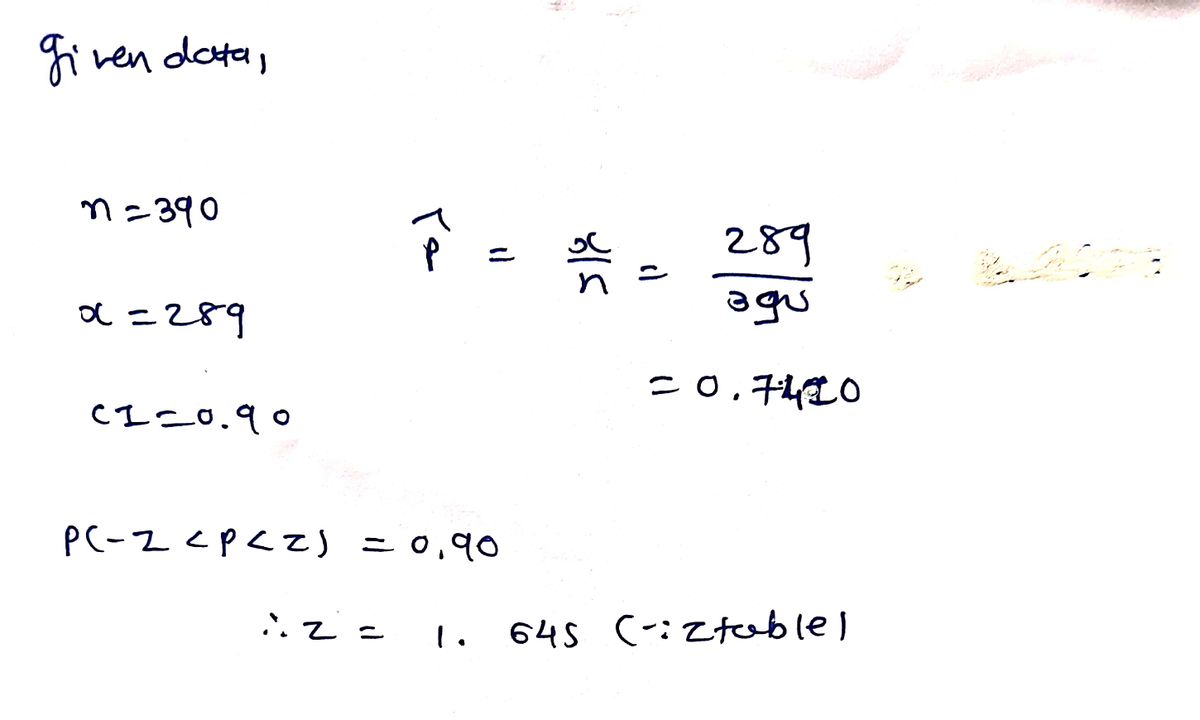 given data,
n = 390
p̂ = x/n = 289/390
x = 289
= 0.7410
CI = 0.90
P(-z < p < z) = 0.90
∴ z = 1.645 (∵ z table)